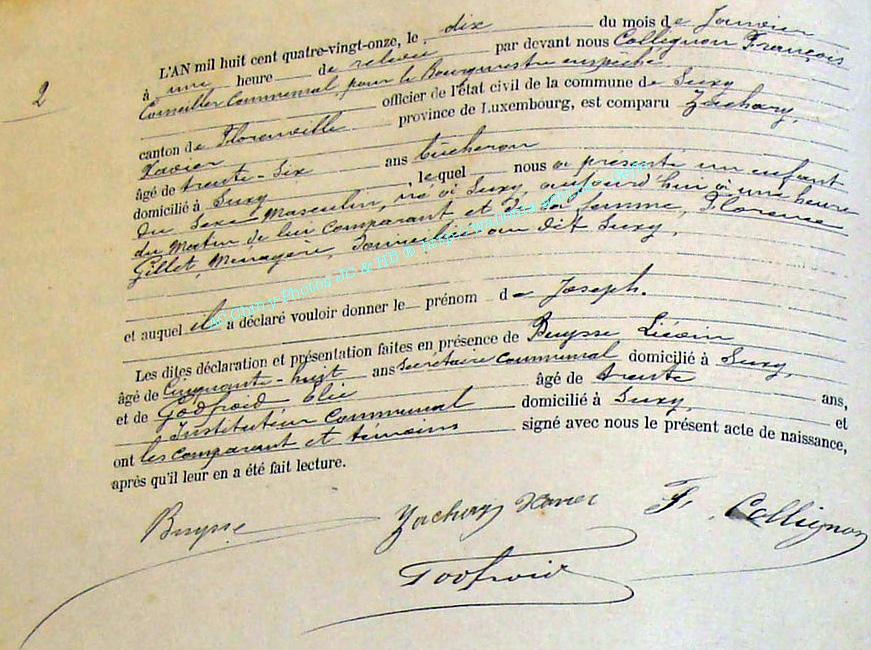 2
L'AN mil huit cent quatre-vingt-onze, le dix du mois de Janvier
à une heure de relevée par devant nous Collignon François
Conseiller Communal, pour le Bourgmestre empêché
officier de l'état civil de la commune de Suxy
canton de Florenville province de Luxembourg, est comparu Zachary,
Xavier
âgé de trente-six ans bûcheron
domicilié à Suxy, lequel nous a présenté un enfant
du Sexe Masculin, né à Suxy, aujourd'hui à une heure
du Matin de lui Comparant et de sa femme, Florence
Gillet, Menagère, domiciliée au dit Suxy,
et auquel il a déclaré vouloir donner le prénom de Joseph.
Les dites déclaration et présentation faites en présence de Buysse Liévin
âgé de Cinquante-huit ans Secrétaire Communal domicilié à Suxy,
et de Godfroid Elie âgé de trente ans,
Instituteur Communal domicilié à Suxy, et
ont les comparant et témoins signé avec nous le présent acte de naissance,
après qu'il leur en a été fait lecture.
Buysse Zachary Xavier F. Collignon
Godfroid